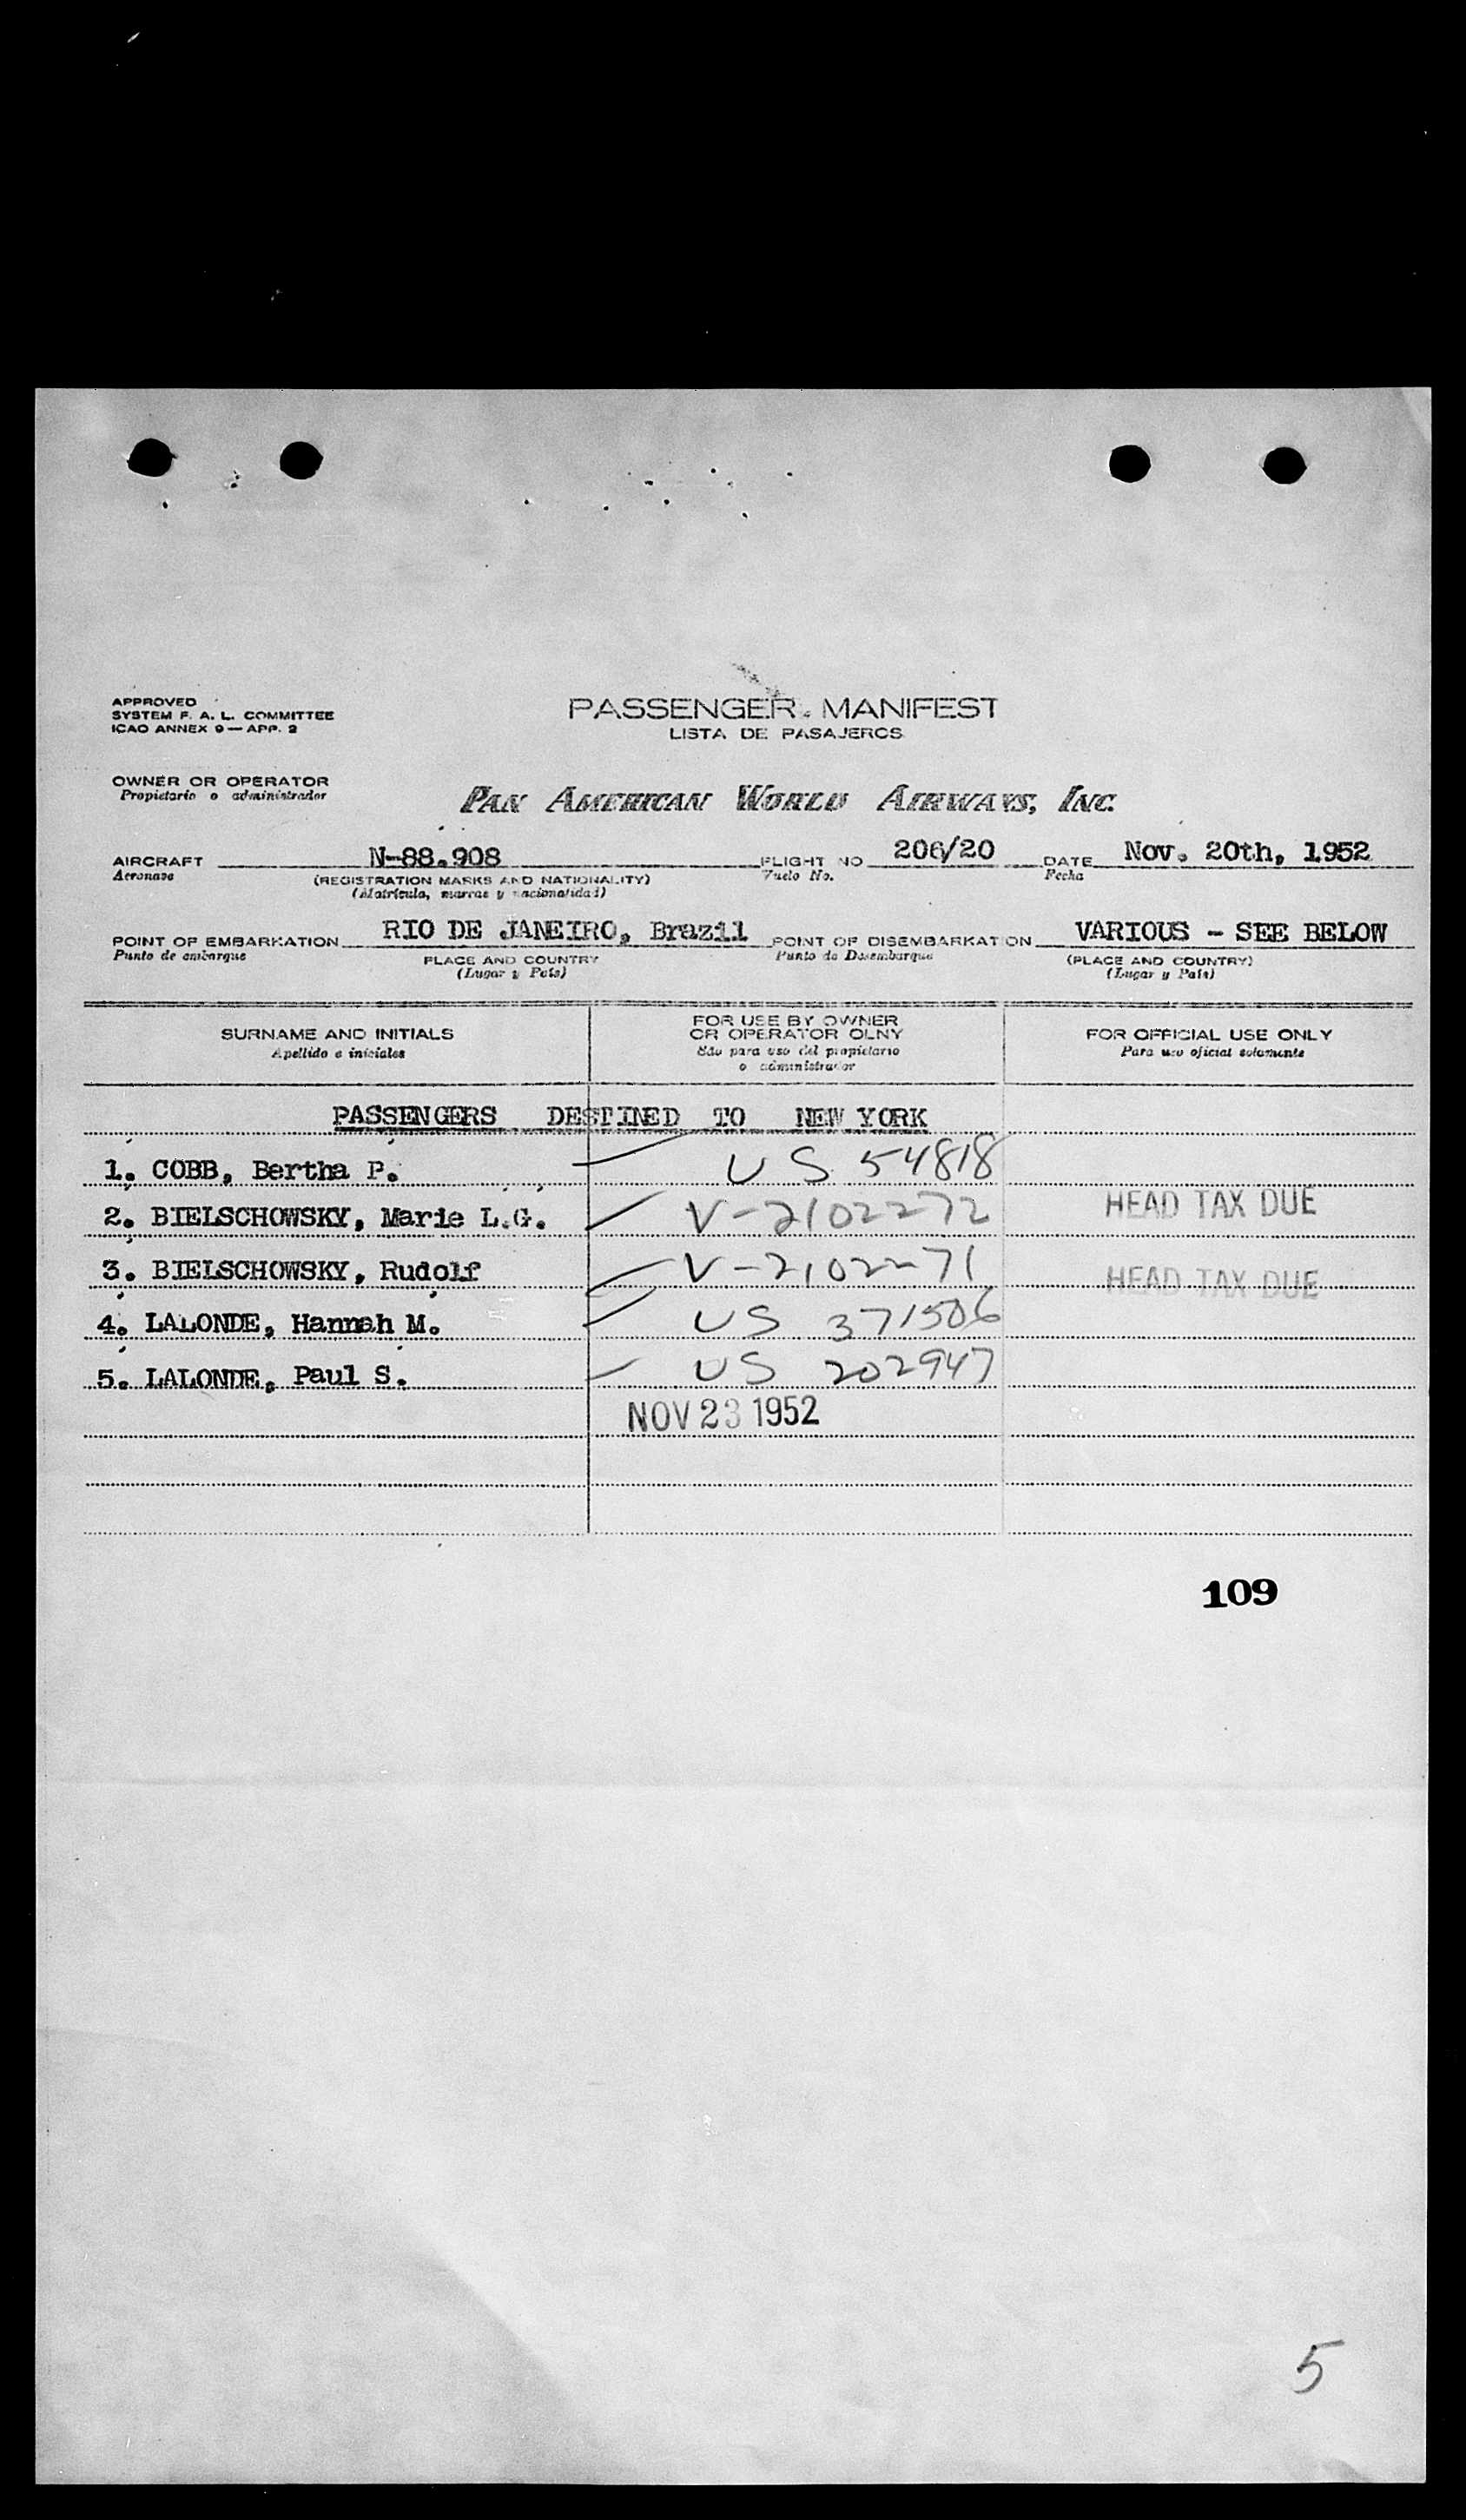 APPROVED
SYSTEM F. A. L. COMMITTEE
ICAO ANNEX 9 — APP. 2
PASSENGER MANIFEST
LISTA DE PASAJEROS
OWNER OR OPERATOR
Propietario o administrador
PAN AMERICAN WORLD AIRWAYS, INC.
AIRCRAFT N-88.908 FLIGHT NO 206/20 DATE Nov. 20th, 1952
Aeronave (REGISTRATION MARKS AND NATIONALITY) Vuelo No. Fecha
(Matrícula, marcas y nacionalidad)
POINT OF EMBARKATION RIO DE JANEIRO, Brazil POINT OF DISEMBARKATION VARIOUS - SEE BELOW
Punto de embarque PLACE AND COUNTRY Punto de Desembarque (PLACE AND COUNTRY)
(Lugar y País) (Lugar y País)
SURNAME AND INITIALS
Apellido e iniciales
FOR USE BY OWNER
OR OPERATOR OLNY
Sólo para uso del propietario
o administrador
FOR OFFICIAL USE ONLY
Para uso oficial solamente
PASSENGERS DESTINED TO NEW YORK
1. COBB, Bertha P. US 54818
2. BIELSCHOWSKY, Marie L.G. V-2102272 HEAD TAX DUE
3. BIELSCHOWSKY, Rudolf V-2102271 HEAD TAX DUE
4. LALONDE, Hannah M. US 371506
5. LALONDE, Paul S. US 202947
NOV 23 1952
109
5